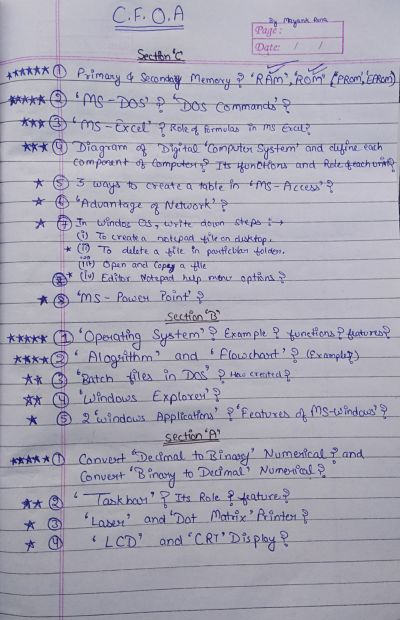 C.F.O.A
By Mayank Rana
Page:
Date: / /
Section 'C'
****** ① Primary & Secondary Memory? 'RAM', 'ROM' (PROM, EPROM)
***** ② 'MS-DOS'? 'DOS Commands'?
*** ③ 'MS-Excel'? Role of formulas in MS Excel?
*** ④ Diagram of 'Digital Computer System' and define each
component of Computer? Its functions and Role of each unit?
* ⑤ 3 ways to create a table in 'MS-Access'?
* ⑥ 'Advantage of Network'?
* ⑦ In windos OS, write down steps :→
(i) To create a notepad file on desktop.
* (ii) To delete a file in particular folder.
(iii) Open and Copy a file
* (iv) Editor Notepad help menu options?
* ⑧ 'MS-Power Point'?
Section 'B'
***** ① 'Operating System'? Example? functions? features?
**** ② 'Alogrithm' and 'Flowchart'? (Example?)
** ③ 'Batch files in DOS'? How created?
** ④ 'Windows Explorer'?
* ⑤ 2 'windows Applications'? 'Features of MS-Windows'?
Section 'A'
***** ① Convert 'Decimal to Binary' Numerical? and
Convert 'Binary to Decimal' Numerical?
** ② 'Taskbar'? Its Role? feature?
* ③ 'Laser' and 'Dot Matrix' Printer?
* ④ 'LCD' and 'CRT' Display?